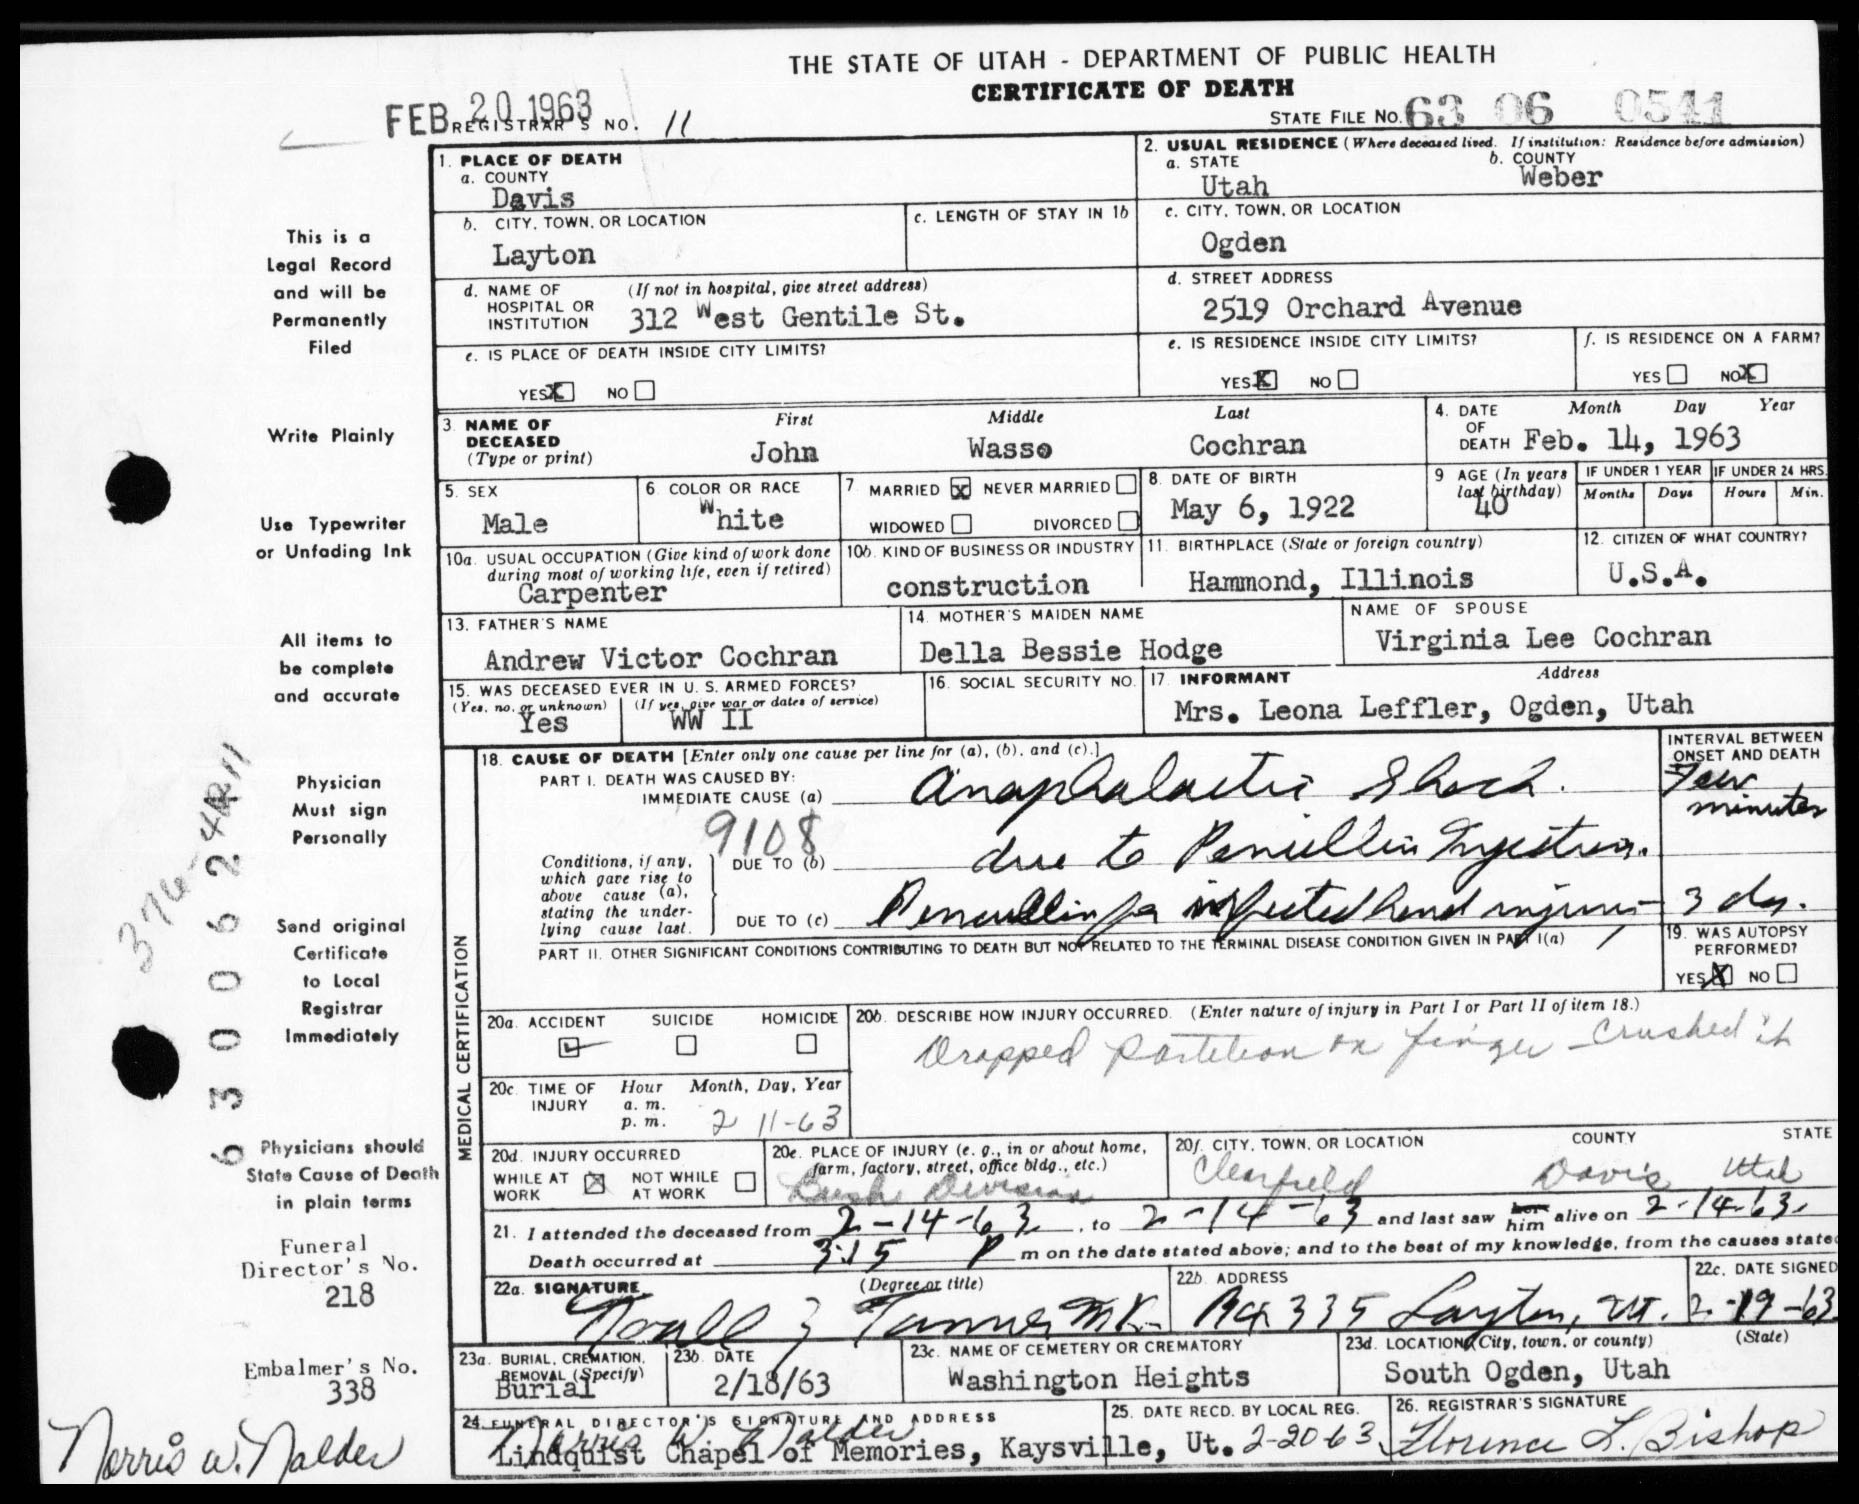 THE STATE OF UTAH - DEPARTMENT OF PUBLIC HEALTH
CERTIFICATE OF DEATH
FEB 20 1963
REGISTRAR'S NO. 11
STATE FILE NO. 63 06 0541
This is a
Legal Record
and will be
Permanently
Filed
Write Plainly
Use Typewriter
or Unfading Ink
All items to
be complete
and accurate
Physician
Must sign
Personally
Send original
Certificate
to Local
Registrar
Immediately
Physicians should
State Cause of Death
in plain terms
Funeral
Director's No.
218
Embalmer's No.
338
Norris W. Nalder
630062
1. PLACE OF DEATH
a. COUNTY
Davis
2. USUAL RESIDENCE (Where deceased lived. If institution: Residence before admission)
a. STATE
Utah
b. COUNTY
Weber
b. CITY, TOWN, OR LOCATION
Layton
c. LENGTH OF STAY IN 1b
c. CITY, TOWN, OR LOCATION
Ogden
d. NAME OF HOSPITAL OR INSTITUTION
(If not in hospital, give street address)
312 West Gentile St.
d. STREET ADDRESS
2519 Orchard Avenue
e. IS PLACE OF DEATH INSIDE CITY LIMITS?
YES X NO
e. IS RESIDENCE INSIDE CITY LIMITS?
YES X NO
f. IS RESIDENCE ON A FARM?
YES NO X
3. NAME OF DECEASED (Type or print)
First Middle Last
John Wasso Cochran
4. DATE OF DEATH
Month Day Year
Feb. 14, 1963
5. SEX
Male
6. COLOR OR RACE
White
7 MARRIED X NEVER MARRIED
WIDOWED DIVORCED
8. DATE OF BIRTH
May 6, 1922
9 AGE (In years last birthday)
40
IF UNDER 1 YEAR
Months Days
IF UNDER 24 HRS.
Hours Min.
10a. USUAL OCCUPATION (Give kind of work done during most of working life, even if retired)
Carpenter
10b. KIND OF BUSINESS OR INDUSTRY
construction
11. BIRTHPLACE (State or foreign country)
Hammond, Illinois
12. CITIZEN OF WHAT COUNTRY?
U.S.A.
13. FATHER'S NAME
Andrew Victor Cochran
14. MOTHER'S MAIDEN NAME
Della Bessie Hodge
NAME OF SPOUSE
Virginia Lee Cochran
15. WAS DECEASED EVER IN U. S. ARMED FORCES?
(Yes, no, or unknown) (If yes, give war or dates of service)
Yes WW II
16. SOCIAL SECURITY NO.
17. INFORMANT Address
Mrs. Leona Leffler, Ogden, Utah
MEDICAL CERTIFICATION
18. CAUSE OF DEATH [Enter only one cause per line for (a), (b), and (c).]
INTERVAL BETWEEN ONSET AND DEATH
PART I. DEATH WAS CAUSED BY:
IMMEDIATE CAUSE (a) Anaphalactic Shock. Few minutes
9108
Conditions, if any, which gave rise to above cause (a), stating the underlying cause last.
DUE TO (b) due to Penicillin Injection.
DUE TO (c) Penicillin for infected hand injury 3 dy.
PART II. OTHER SIGNIFICANT CONDITIONS CONTRIBUTING TO DEATH BUT NOT RELATED TO THE TERMINAL DISEASE CONDITION GIVEN IN PART I(a)
19. WAS AUTOPSY PERFORMED?
YES X NO
20a. ACCIDENT SUICIDE HOMICIDE
20b. DESCRIBE HOW INJURY OCCURRED. (Enter nature of injury in Part I or Part II of item 18.)
Dropped partition on finger - crushed it
20c. TIME OF INJURY
Hour Month, Day, Year
a. m.
p. m.
2 11-63
20d. INJURY OCCURRED
WHILE AT WORK X NOT WHILE AT WORK
20e. PLACE OF INJURY (e. g., in or about home, farm, factory, street, office bldg., etc.)
Division
20f. CITY, TOWN, OR LOCATION COUNTY STATE
Clearfield Davis Utah
21. I attended the deceased from 2-14-63, to 2-14-63 and last saw her him alive on 2-14-63.
Death occurred at 3:15 P m on the date stated above; and to the best of my knowledge, from the causes state
22a. SIGNATURE (Degree or title)
Noall Z Tanner M.D.
22b. ADDRESS
Bx 335 Layton, Ut.
22c. DATE SIGNED
2-19-63
23a. BURIAL, CREMATION, REMOVAL (Specify)
Burial
23b. DATE
2/18/63
23c. NAME OF CEMETERY OR CREMATORY
Washington Heights
23d. LOCATION (City, town, or county) (State)
South Ogden, Utah
24. FUNERAL DIRECTOR'S SIGNATURE AND ADDRESS
Norris W. Nalder
Lindquist Chapel of Memories, Kaysville, Ut.
25. DATE RECD. BY LOCAL REG.
2-20-63
26. REGISTRAR'S SIGNATURE
Florence L. Bishop